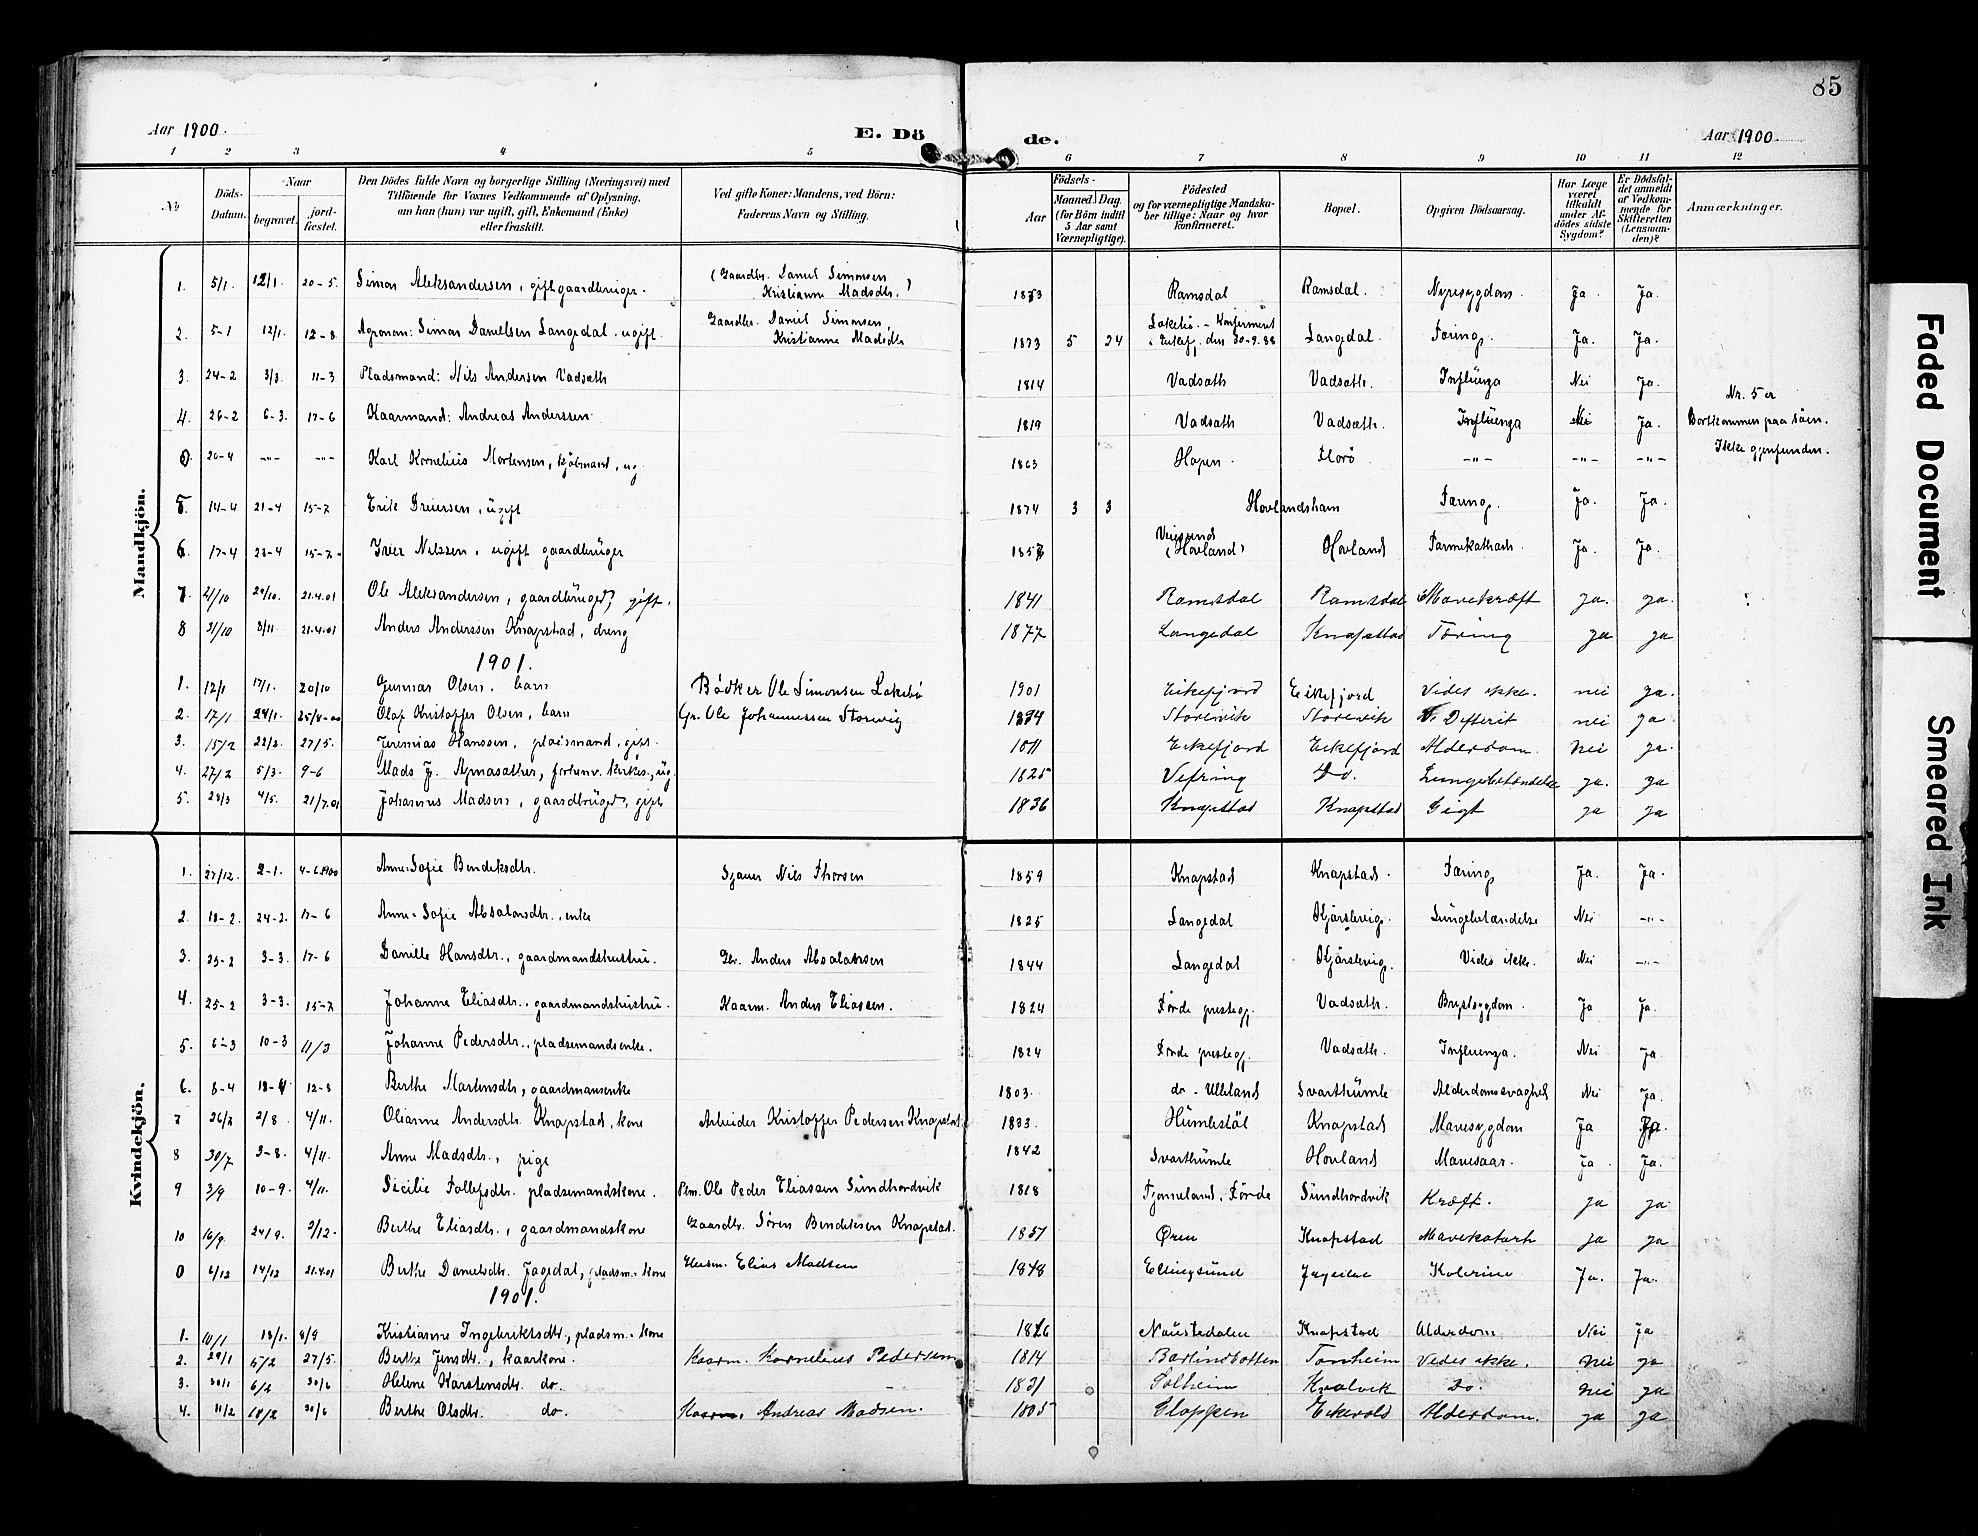 85
Aar 1900.
E. Dö de.
Aar 1900.
1 2 3 4 5 6 7 8 9 10 11 12
No
Döds-Datum.
Naar
begravet.
jord-fæstet.
Den Dödes fulde Navn og borgerlige Stilling (Næringsvei) med
Tilföiende for Voxnes Vedkommende af Oplysning,
om han (hun) var ugift, gift, Enkemand (Enke)
eller fraskilt.
Ved gifte Koner: Mandens, ved Börn:
Faderens Navn og Stilling.
Födsels-
Aar
Maaned. Dag.
(for Börn indtil
5 Aar samt
Værnepligtige).
Födested
og for værnepligtige Mandska-
ber tillige: Naar og hvor
konfirmeret.
Bopæl.
Opgiven Dödsaarsag.
Har Læge
været
tilkaldt
under Af-
dödes sidste
Sygdom?
Er Dödsfal-
det anmeldt
af Vedkom-
mende for
Skifteretten
(Lensman-
den)?
Anmærkninger.
Mandkjön.
1. 5/1. 12/1. 20-5. Simon Aleksandersen, gift gaardbruger. (Gaardbr. Daniel Simonsen Kristianne Madsdtr.) Ramsdal Ramsdal. Nyresygdom. Ja. Ja.
2. 5-1 12/1. 12-8 Agronom: Simon Danielsen Langedal, ugift. Gaardbr. Daniel Simonsen, Kristianne Madsdtr 1873 5 24 Lokebö. - Konfirmert i Eikefj. den 30-9.88 Langedal. Tæring. Ja. Ja.
3. 24-2 3/3. 11-3 Pladsmand: Nils Andersen Vadsæth 1814 Vadsæth Vadsæth. Influenza Nei Ja.
4. 26-2 6-3. 17-6 Kaarmand: Andreas Anderssen 1819 Vadsæth Vadsæth. Influenza Nei Ja.
Nr. 5 er
Bortkommen paa Söen.
Ikke gjenfunden.
0. 20-4 -"- -"- Karl Kornelius Mortensen, ug. 1863 Hopen Florö -"- -"- -"-
5. 14-4 21-4 15-7 Erik Dreiersen, ugift 1874 3 3 Hovlandsham Tæring. Ja. Ja.
6. 17-4 23-4 15-7- Iver Nilssen, ugift gaardbruger Veiesund (Hovland) Hovland Tarmekatharh. Ja. Ja.
7. 21/10 29/10. 21.4.01 Ole Aleksandersen, gaardbruger, gift. 1841 Ramsdal Ramsdal Mavekræft ja. ja.
8 31/10 8/11 21.4.01 Anders Anderssen Knapstad, dreng 1877 Langedal Knapstad Tæring ja ja
1901.
1. 12/1 17/1. 20/10 Gunnar Olsen. barn Bödker Ole Simonsen Lokebö 1901 Eikefjord Eikefjord Vides ikke. nei ja.
2. 17/1 24/1. Olaf Kristoffer Olsen, barn Gr. Ole Johannessen Storevig 1894 Storevik Storevik Difterit nei ja
3. 15/2 22/2. 27/5. Jeremias Hanssen, pladsmand, gift. Eikefjord Eikefjord Alderdom. nei ja.
4. 27/2 5/3. 9-6 Mads J. 1825 Vefring Do. Lungebetændelse ja. ja
5. 28/3 4/5. 21/7.01 Johannes Madsen, gaardbruger, gift 1836 Knapstad Knapstad Gigt ja ja
Kvindekjön.
1. 27/12. 2-1. 4-6.1900 Anne-Sofie Bendiksdtr. Nils Thorsen 1859 Knapstad Knapstad. Tæring Ja. Ja.
2. 18-2. 24-2. 17-6 Anne-Sofie Absalonsdtr., enke 1825 Langedal Kjörslevig. Lungebetændelse Nei -"-
3. 23-2 3-3. 17-6 Danille Hansdtr., gaardmandshustru. Gbr. Anders Absalonsen 1844 Langedal Kjörslevig. Vides ikke. Nei -"-
4. 25-2 3-3. 15-7 Johanne Eliasdtr., gaardmandshustru. Kaarm. Anders Eliassen. 1824 Förde prestegj. Vadsæth. Brystsygdom. Ja Ja.
5. 6-3 10-3 11/3 Johanne Pedersdtr., pladsemandsenke. 1824 Förde prestegj. Vadsæth. Influenza. Nei Ja
6. 8-4 18-4 12-8 Berthe Martensdtr, gaardmansenke 1803. do - Ulleland Svarthumle Alderdomssvaghed Nei Ja.
7 26/7 2/8 4/11. Olianne Andersdtr. Knapstad, kone Arbeider Kristoffer Pedersen Knapstad 1833. Humlestöl Knapstad Mavesygdom Ja Ja.
8 30/7 3-8. 4/11. Anne Madsdtr., pige 1842 Svarthumle Hovland Mavesaar. Ja. Ja.
9 3/9 10-9. 4/11. Sicilie Tollefsdtr. pladsemandskone. Plm. Ole Peder Eliassen Sundhordvik 1818 Förde Sundhordvik Kræft. ja ja
10 16/9. 24/9. 2/12. Berthe Eliasdtr., gaardmandskone Gaardbr. Sören Bendiksen Knapstad. Ören Knapstad Mavekatarh ja ja
0 6/12 14/12 21.4.01 Berthe Danielsdtr. Jagedal, pladsm.-kone Husm. Elias Madsen 1848 Eltingsund Kolerine Ja. Ja.
1901.
1. 10/1 18/1. 8/9. Kristianne Ingebriktsdtr., pladsm.-kone Naustedalen Knapstad Alderdom Nei Ja
2. 29/1 5/2 27/5. Berthe Jensdtr., kaarkone. Kaarm. Kornelius Pedersen 1814 Barlindbotten Tonheim Vides ikke. nei ja
3. 30/1 6/2 30/6 Helene Karstensdtr. do. 1831 Solheim Kvalvik Do. nei ja
4. 11/2 18/2 30/6 Berthe Olsdtr. do. Kaarm. Andreas Madsen. 1805 Gloppen Eikevold Alderdom. ja ja
Faded Document
Smeared Ink